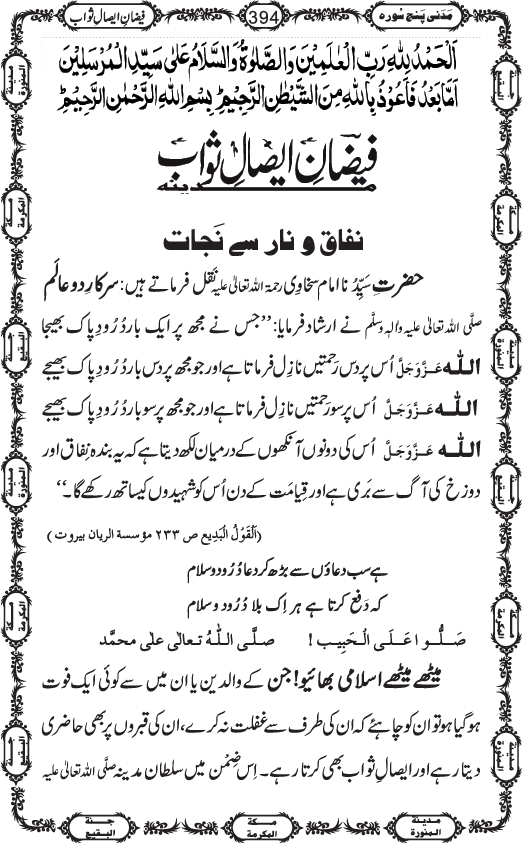 مَدَنی پنج سورہ
394
فیضانِ ایصالِ ثواب
اَلْحَمْدُ لِلّٰهِ رَبِّ الْعٰلَمِیْنَ وَالصَّلٰوةُ وَالسَّلَامُ عَلٰی سَیِّدِ الْمُرْسَلِیْنَ
اَمَّا بَعْدُ فَاَعُوْذُ بِاللّٰهِ مِنَ الشَّیْطٰنِ الرَّجِیْمِ ؕ بِسْمِ اللّٰهِ الرَّحْمٰنِ الرَّحِیْمِ ؕ
فیضانِ ایصالِ ثواب
مدینہ
نفاق و نار سے نَجات
حضرتِ سَیِّدُ نا امام سخاوی رحمۃ اللہ تعالیٰ علیہ نقل فرماتے ہیں: سرکارِ دو عالم
صلَّی اللہ تعالیٰ علیہ واٰلہٖ وسلَّم نے ارشاد فرمایا: ’’جس نے مجھ پر ایک بار دُرُودِ پاک بھیجا
اللّٰہ عَزَّوَجَلَّ اُس پر دس رَحمتیں نازِل فرماتا ہے اور جو مجھ پر دس بار دُرُودِ پاک بھیجے
اللّٰہ عَزَّوَجَلَّ اُس پر سو رحمتیں نازِل فرماتا ہے اور جو مجھ پر سو بار دُرُودِ پاک بھیجے
اللّٰہ عَزَّوَجَلَّ اُس کی دونوں آنکھوں کے درمیان لکھ دیتا ہے کہ یہ بندہ نِفاق اور
دوزخ کی آگ سے بَری ہے اور قِیامت کے دن اُس کو شہیدوں کیساتھ رکھے گا۔‘‘
(اَلْقَوْلُ الْبَدِیع ص ۲۳۳ مؤسسۃ الریان بیروت)
ہے سب دعاؤں سے بڑھ کر دعا دُرُود و سلام
کہ دَفع کرتا ہے ہر اِک بلا دُرُود و سلام
صَلُّوا عَلَی الْحَبِیب ! صلَّی اللّٰہُ تعالٰی علٰی محمَّد
میٹھے میٹھے اسلامی بھائیو! جن کے والِدین یا ان میں سے کوئی ایک فوت
ہو گیا ہو تو ان کو چاہئے کہ ان کی طرف سے غفلت نہ کرے، ان کی قبروں پر بھی حاضری
دیتا رہے اور ایصالِ ثواب بھی کرتا رہے۔ اِس ضِمْن میں سلطانِ مدینہ صلَّی اللہ تعالیٰ علیہ
مدینة المنورة
جنة البقیع
مكة المکرمة
مكة المکرمة
مدینة المنورة
جنة البقیع
جنة البقیع
مدینة المنورة
مكة المکرمة
مكة المکرمة
مدینة المنورة
جنة البقیع
جنة البقیع
مكة المکرمة
مدینة المنورة